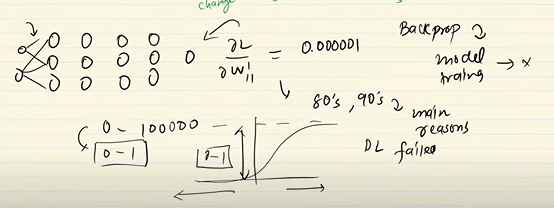 change
∂L
∂W'₁₁
= 0.000001
Backprop
model
traing → x
80's, 90's
main
reasons
DL failed
0 - 100000
0-1
0-1